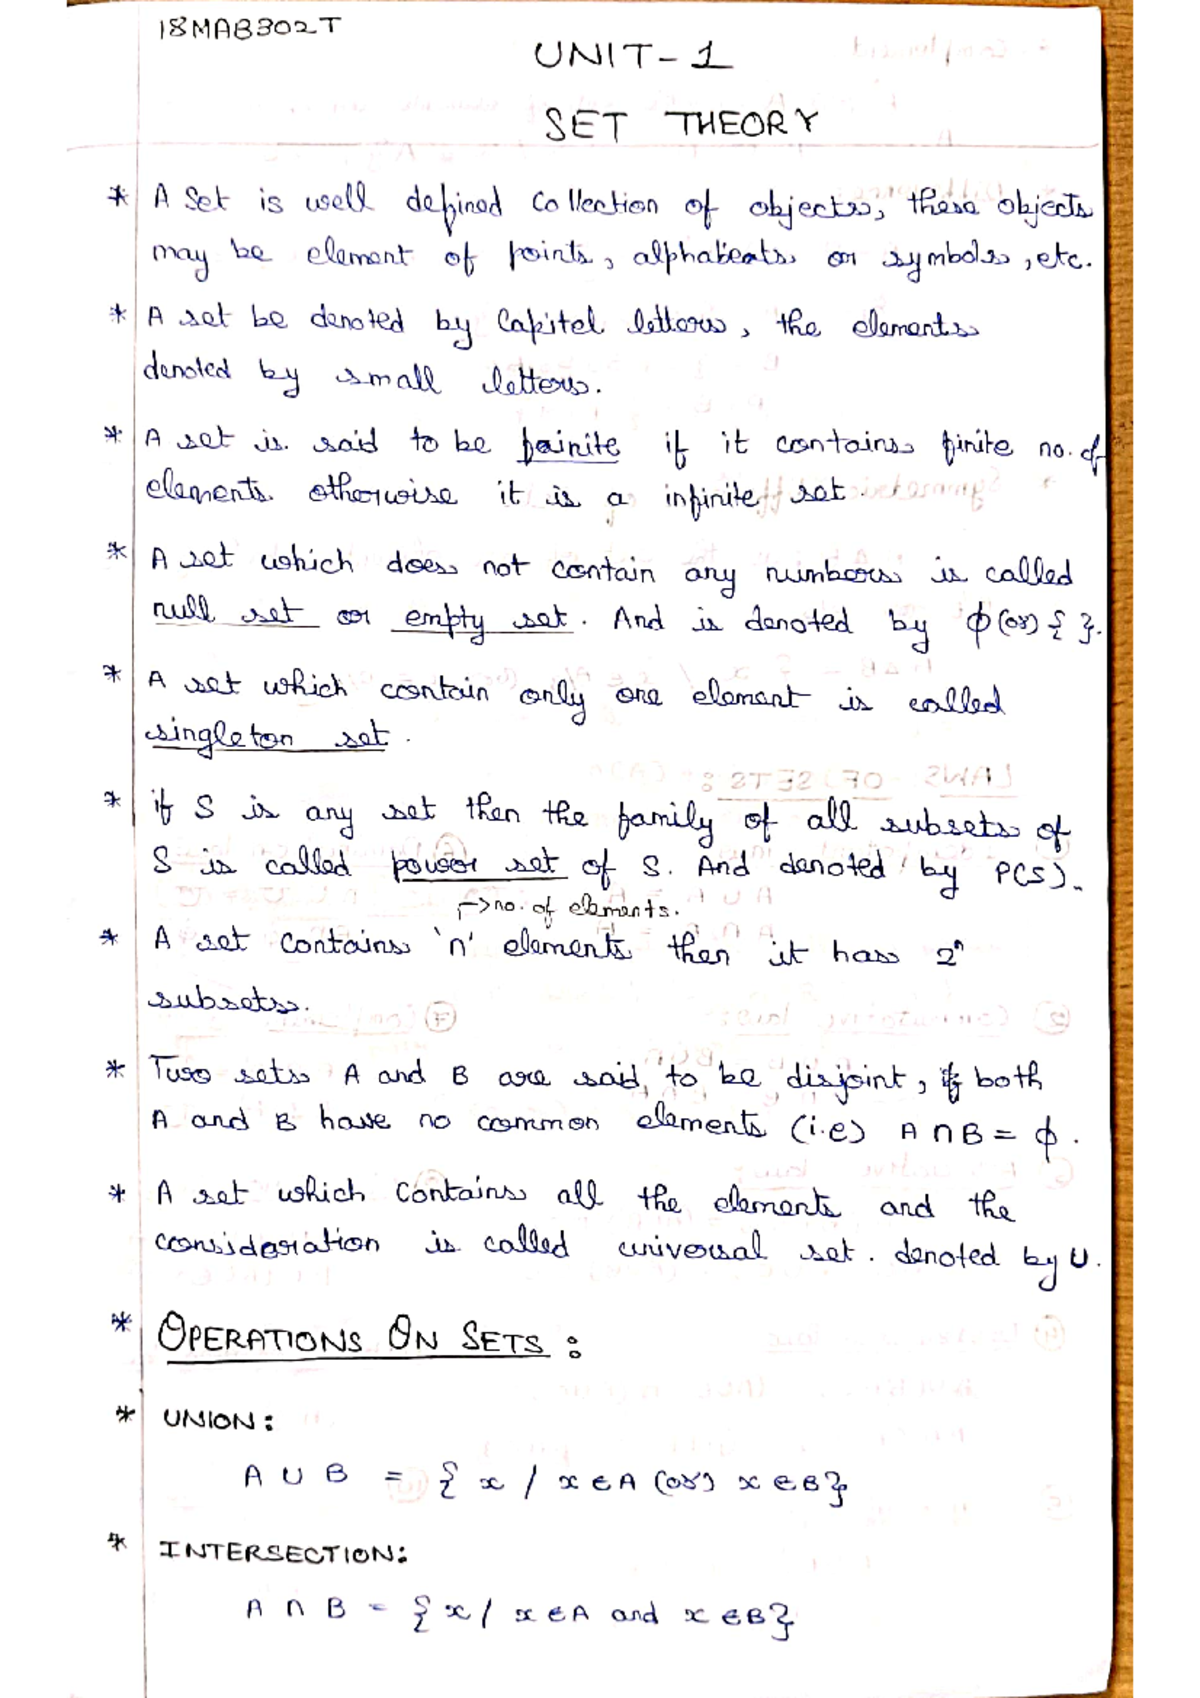 18MAB302T
UNIT-1
SET THEORY
* A Set is well defined collection of objects, these objects
may be element of points, alphabeats or symbols, etc.
* A set be denoted by Capital letters, the elements
denoted by small letters.
* A set is said to be fainite if it contains finite no. of
elements. otherwise it is a infinite set.
* A set which does not contain any numbers is called
null set or empty set. And is denoted by ϕ (or) { }.
* A set which contain only one element is called
singleton set.
* if S is any set then the family of all subsets of
S is called power set of S. And denoted by P(S).
→ no. of elements.
* A set contains 'n' elements then it has 2ⁿ
subsets.
* Two sets A and B are said, to be disjoint, if both
A and B have no common elements (i.e) A ∩ B = ϕ.
* A set which contains all the elements and the
consideration is called universal set. denoted by U.
* OPERATIONS ON SETS:
* UNION:
A ∪ B = { x / x ∈ A (or) x ∈ B}
* INTERSECTION:
A ∩ B = { x / x ∈ A and x ∈ B}